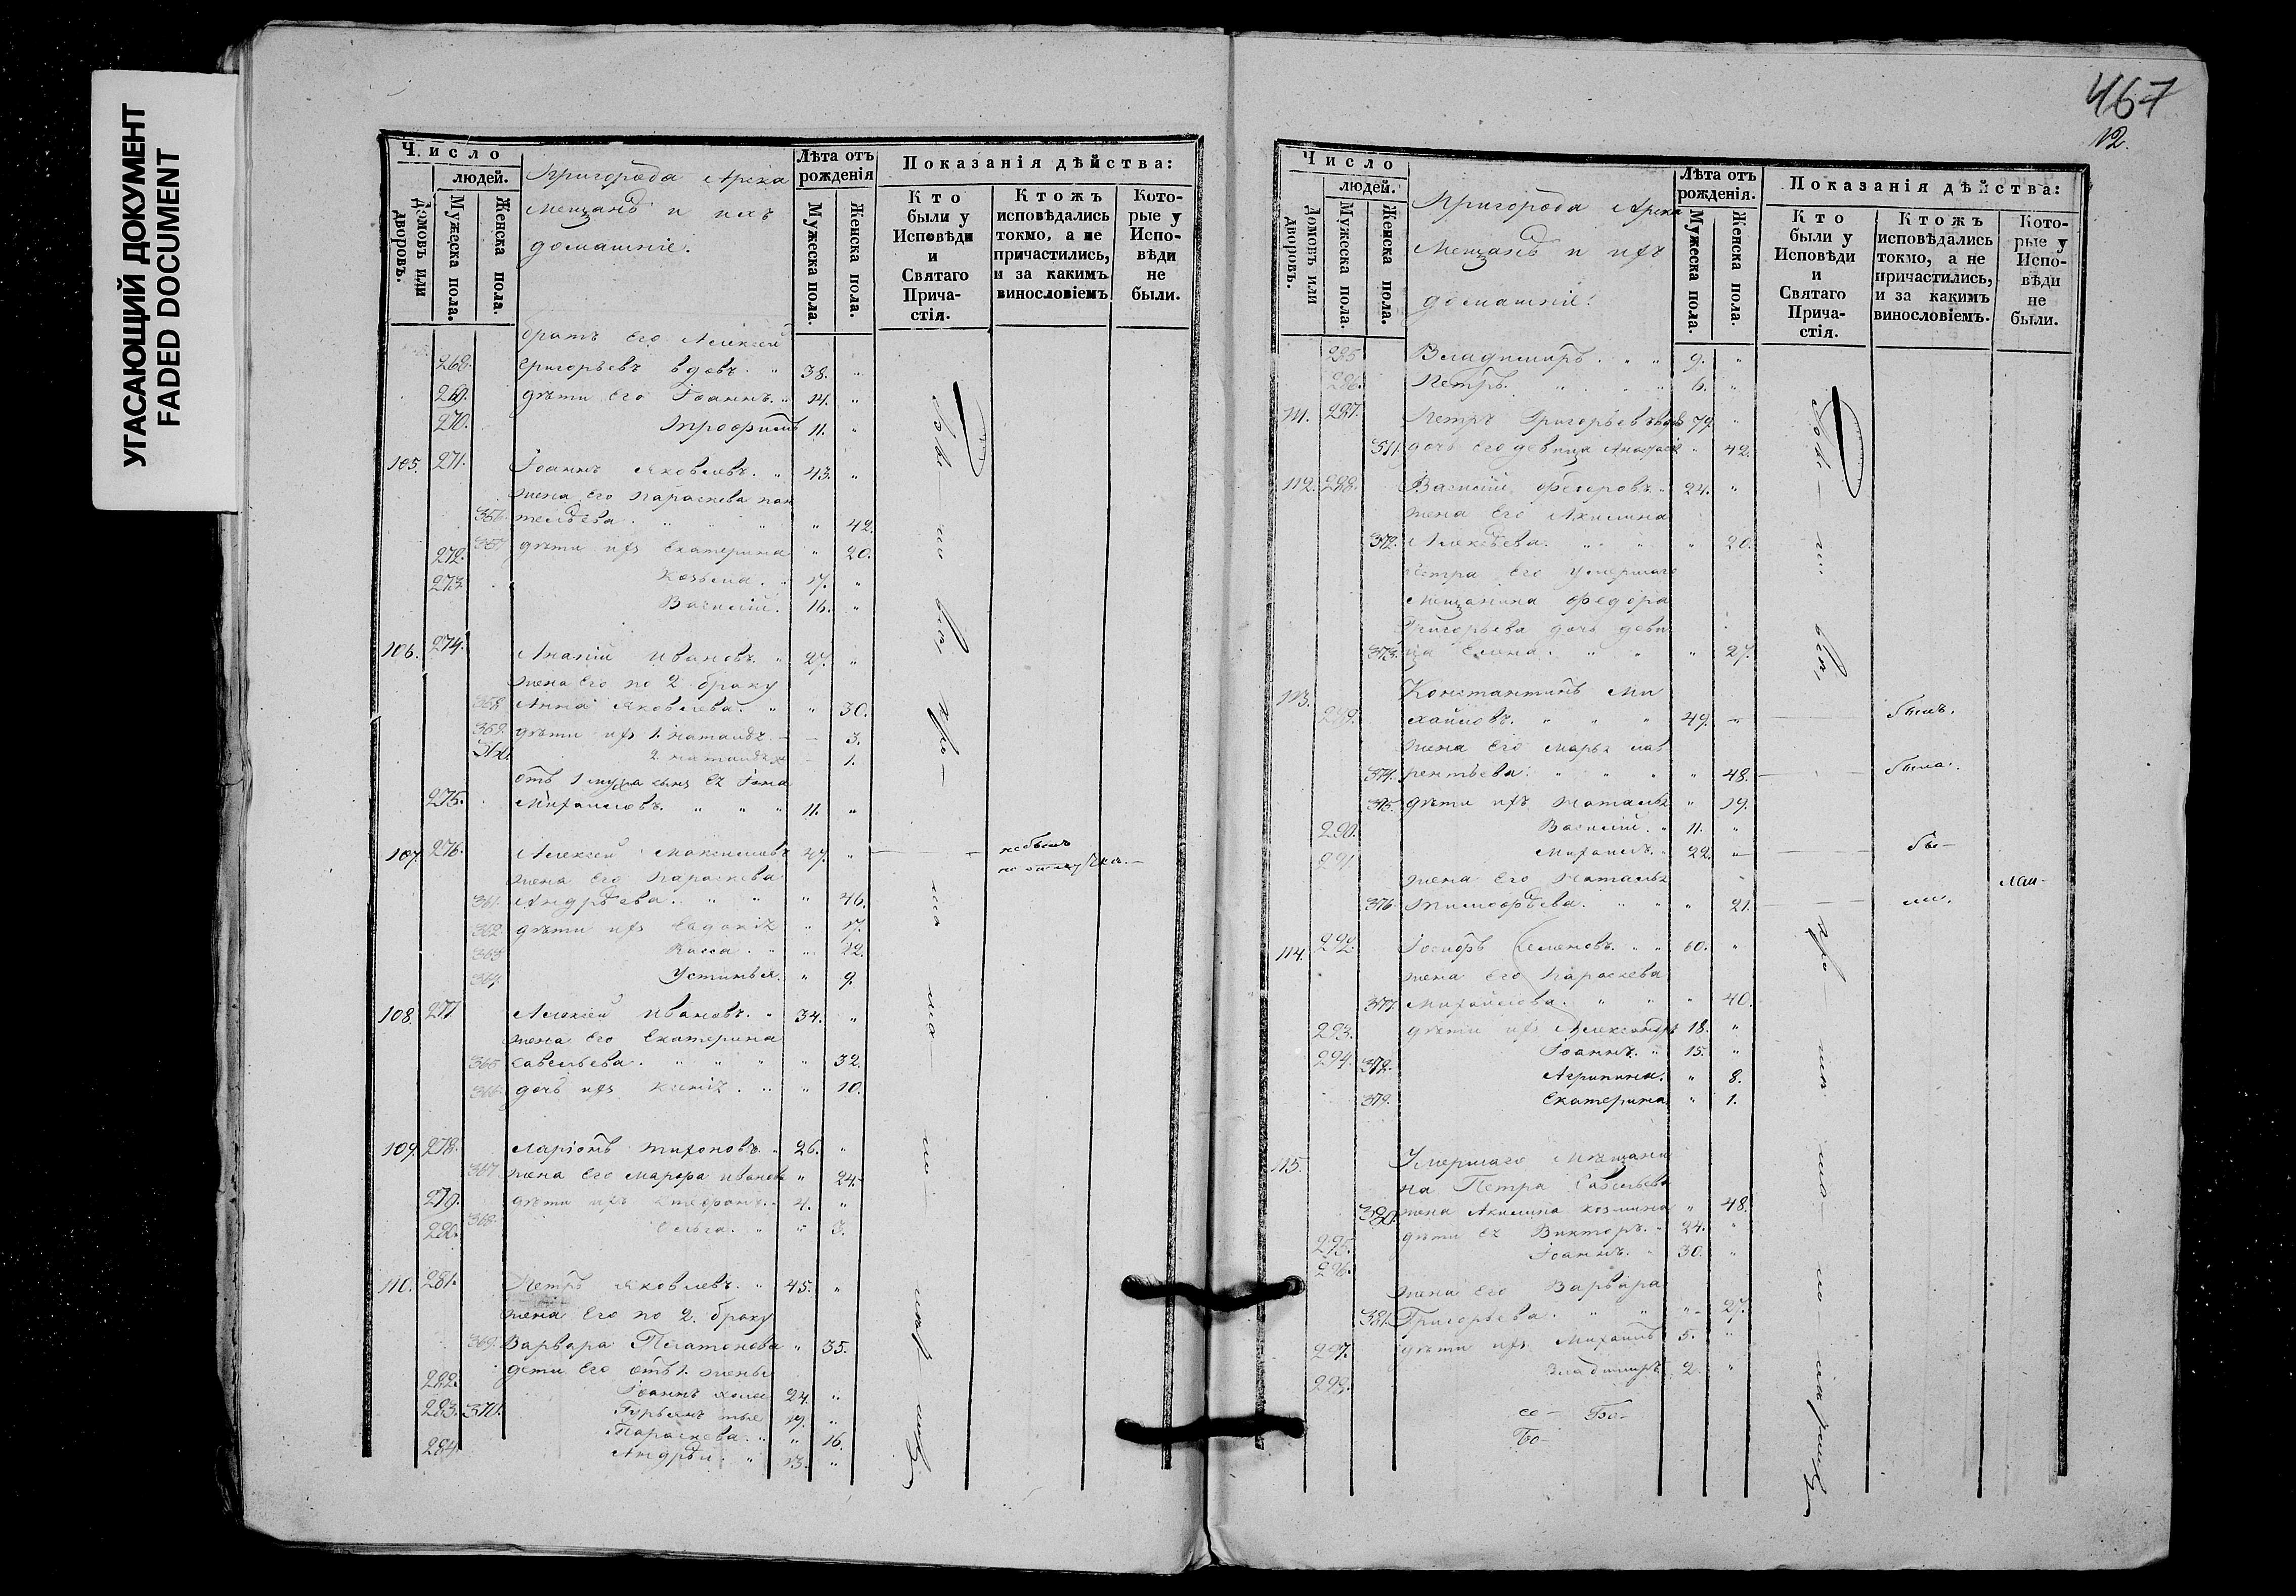 УГАСАЮЩИЙ ДОКУМЕНТ
FADED DOCUMENT
Число
людей.
Домовъ или дворовъ.
Мужеска пола.
Женска пола.
Пригорода Арска
Мещанъ и ихъ
домашніе.
Лѣта отъ рожденія
Мужеска пола.
Женска пола.
Показанія дѣйства:
Кто были у Исповѣди и Святаго Причастія.
Ктожъ исповѣдались токмо, а не причастились, и за какимъ винословіемъ
Которые у Исповѣди не были.
братъ его Алексей
268. Григорьевъ вдовъ. " 38. "
269. дѣти его Іоаннъ. " 14. "
270. Трофимъ 11. "
105. 271. Іоаннъ Яковлевъ. " 43. "
жена его Параскева пан
356. телѣева. " " " " 42.
272. 357 дѣти ихъ Екатерина " 20.
273 Козьма. " 17. "
Василій. 16. "
106. 274. Ананій Ивановъ. " 27. "
жена его по 2 браку
358. Анна Яковлева. " " 30.
359. дѣти ихъ 1. Наталья - - 3.
360 2 Наталья - 1.
отъ 1 мужа сынъ ея
275. Михайловъ. " " " 11. "
107. 276. Алексей Максимовъ 47. "
не былъ
по отлучке.
жена его Параскева
361. Андрѣева. " " " 46.
362. дѣти ихъ Евдокія " 17.
363 Васса. " " 12.
364. Устинья. " 9.
108. 277 Алексей Ивановъ. " 34. "
жена его Екатерина
365 Савельева. " " " " 32.
366. дочь ихъ Ксенія. " " 10.
109. 278. Ларіонъ Тихоновъ. " 26. "
367 жена его Марфа Иванова " 24.
279. дѣти ихъ Стефанъ. " 4. "
280. 368. Ольга. " " 3.
110. 281. Петръ Яковлевъ. " 45. "
жена его по 2. браку
369. Варвара Платонова " 35.
дети его отъ 1. жены
282. Іоаннъ холос 24. "
283. 370. Гурьянъ 19. "
Параскева. " " 16.
284. Андрѣй. " 13. "
467
12.
Число
людей.
Домовъ или дворовъ.
Мужеска пола.
Женска пола.
Пригорода Арска
Мещанъ и ихъ
домашніе.
Лѣта отъ рожденія.
Мужеска пола.
Женска пола.
Показанія дѣйства:
Кто были у Исповѣди и Святаго Причастія.
Ктожъ исповѣдались токмо, а не причастились, и за какимъ винословіемъ.
Которые у Исповѣди не были.
285 Владимиръ. " " 9. "
286. Петръ. " " " 6. "
111. 287. Петръ Григорьевъ вдовъ 79. "
371. дочь его девица Анастасія " 42.
112. 288. Василій Федоровъ. " 24. "
жена его Акилина
372. Алексѣева. " " " 20.
сестра его умершаго
Мещанина Федора
Григорьева дочь деви
373. ца Елена. " " " 27.
113. Константинъ Ми
289. хайловъ. " " " 49. - былъ.
жена его Марья Лав
374. рентьева. " " " " 48. - была.
375. дѣти ихъ Наталья " 19.
290. Василій. " 11. "
291 Михаилъ. " 22. " - бы-
жена его Наталья
ли-
376. Тимофѣева. " " " 21. -
114. 292. Іосифъ Семеновъ. " " 60. "
жена его Параскева
377. Михайлова. " " " 40.
293. дѣти ихъ Александръ 18. "
294. 378. Іоаннъ. " 15. "
Агрипина. " 8.
379. Екатерина " 1.
115. Умершаго Мещани
на Петра Савельева
380. жена Акилина Козмина " 48.
295. дѣти ея Викторъ. " 24. "
296. Іоаннъ. " 30. "
жена его Варвара
381. Григорьева. " " " 27.
297. дѣти ихъ Михаилъ 5. "
298. Владимиръ 2. "
со- Бо-
Бо-